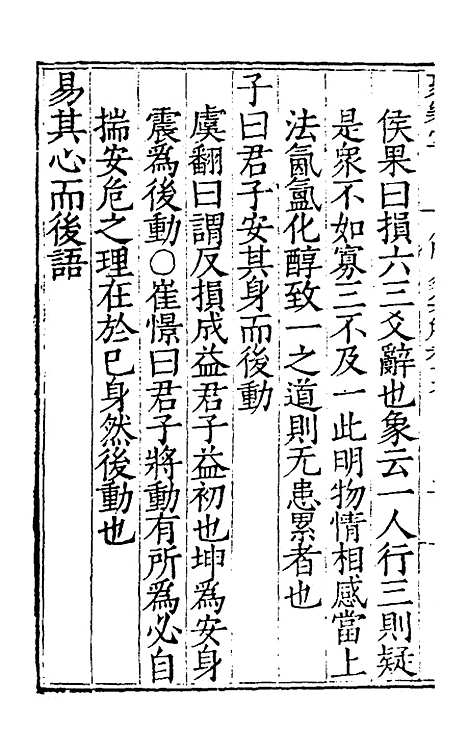 侯果曰損六三爻辭也象云一人行三則疑
是衆不如寡三不及一此明物情相感當上
法氤氳化醇致一之道則无患累者也
子曰君子安其身而後動
虞翻曰謂反損成益君子益初也坤爲安身
震爲後動○崔憬曰君子將動有所爲必自
揣安危之理在於己身然後動也
易其心而後語